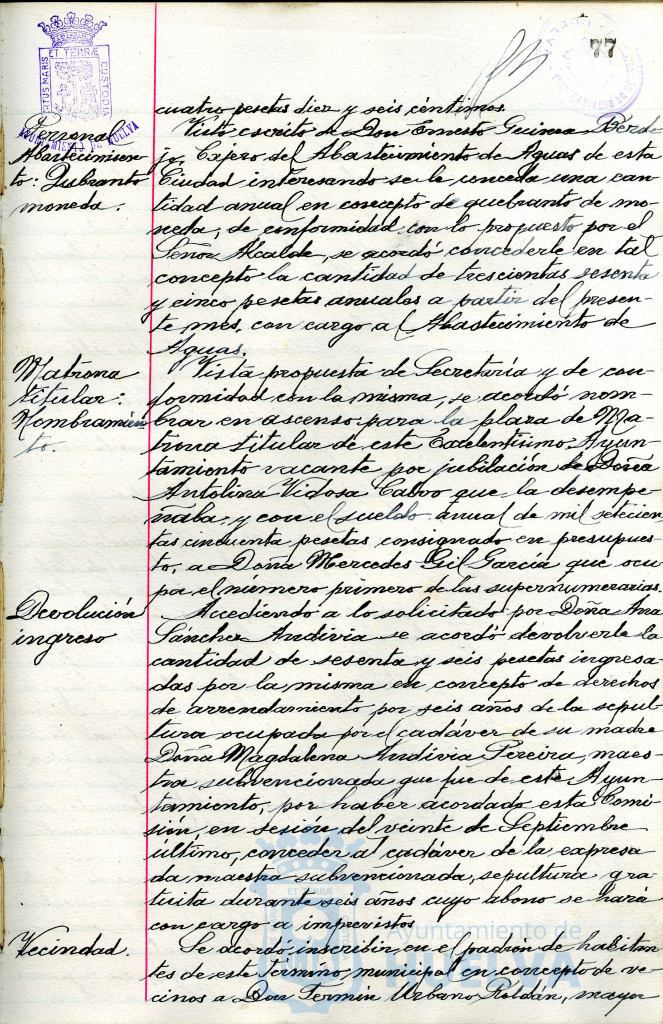 77
PORTUS MARIS
ET TERRÆ
CUSTODIA
AYUNTAMIENTO DE HUELVA
cuatro pesetas diez y seis céntimos.
Personal
Abastecimien-
to: Qubranto
moneda.
Visto escrito de Don Ernesto Guinea Berde-
jo, Cajero del Abastecimiento de Aguas de esta
Ciudad interesando se le conceda una can-
tidad anual en concepto de quebranto de mo-
neda, de conformidad con lo propuesto por el
Señor Alcalde, se acordó concederle en tal
concepto la cantidad de trescientas sesenta
y cinco pesetas anuales a partir del presen-
te mes, con cargo al Abastecimiento de
Aguas.
Matrona
titular:
Nombramien
to.
Vista propuesta de Secretaría y de con-
formidad con la misma, se acordó nom-
brar en ascenso para la plaza de Ma-
trona titular de este Excelentísimo Ayun-
tamiento vacante por jubilación de Doña
Antolina Vidosa Calvo que la desempe-
ñaba, y con el sueldo anual de mil setecien-
tas cincuenta pesetas consignado en presupues-
to, a Doña Mercedes Gil García que ocu-
pa el número primero de las supernumerarias.
Devolución
ingreso
Accediendo a lo solicitado por Doña Ana
Sánchez Andivia se acordó devolverle la
cantidad de sesenta y seis pesetas ingresa-
das por la misma en concepto de derechos
de arrendamiento por seis años de la sepul-
tura ocupada por el cadáver de su madre
Doña Magdalena Andivia Pereira, maes-
tra subvencionada que fue de este Ayun-
tamiento, por haber acordado esta Comi-
sión, en sesión del veinte de Septiembre
último, conceder al cadáver de la expresa-
da maestra subvencionada, sepultura gra-
tuita durante seis años cuyo abono se hará
con cargo a imprevistos.
Vecindad.
Se acordó inscribir en el padrón de habitan-
tes de este término municipal en concepto de ve-
cinos a Don Fermín Urbano Roldán, mayor
Ayuntamiento de
HUELVA